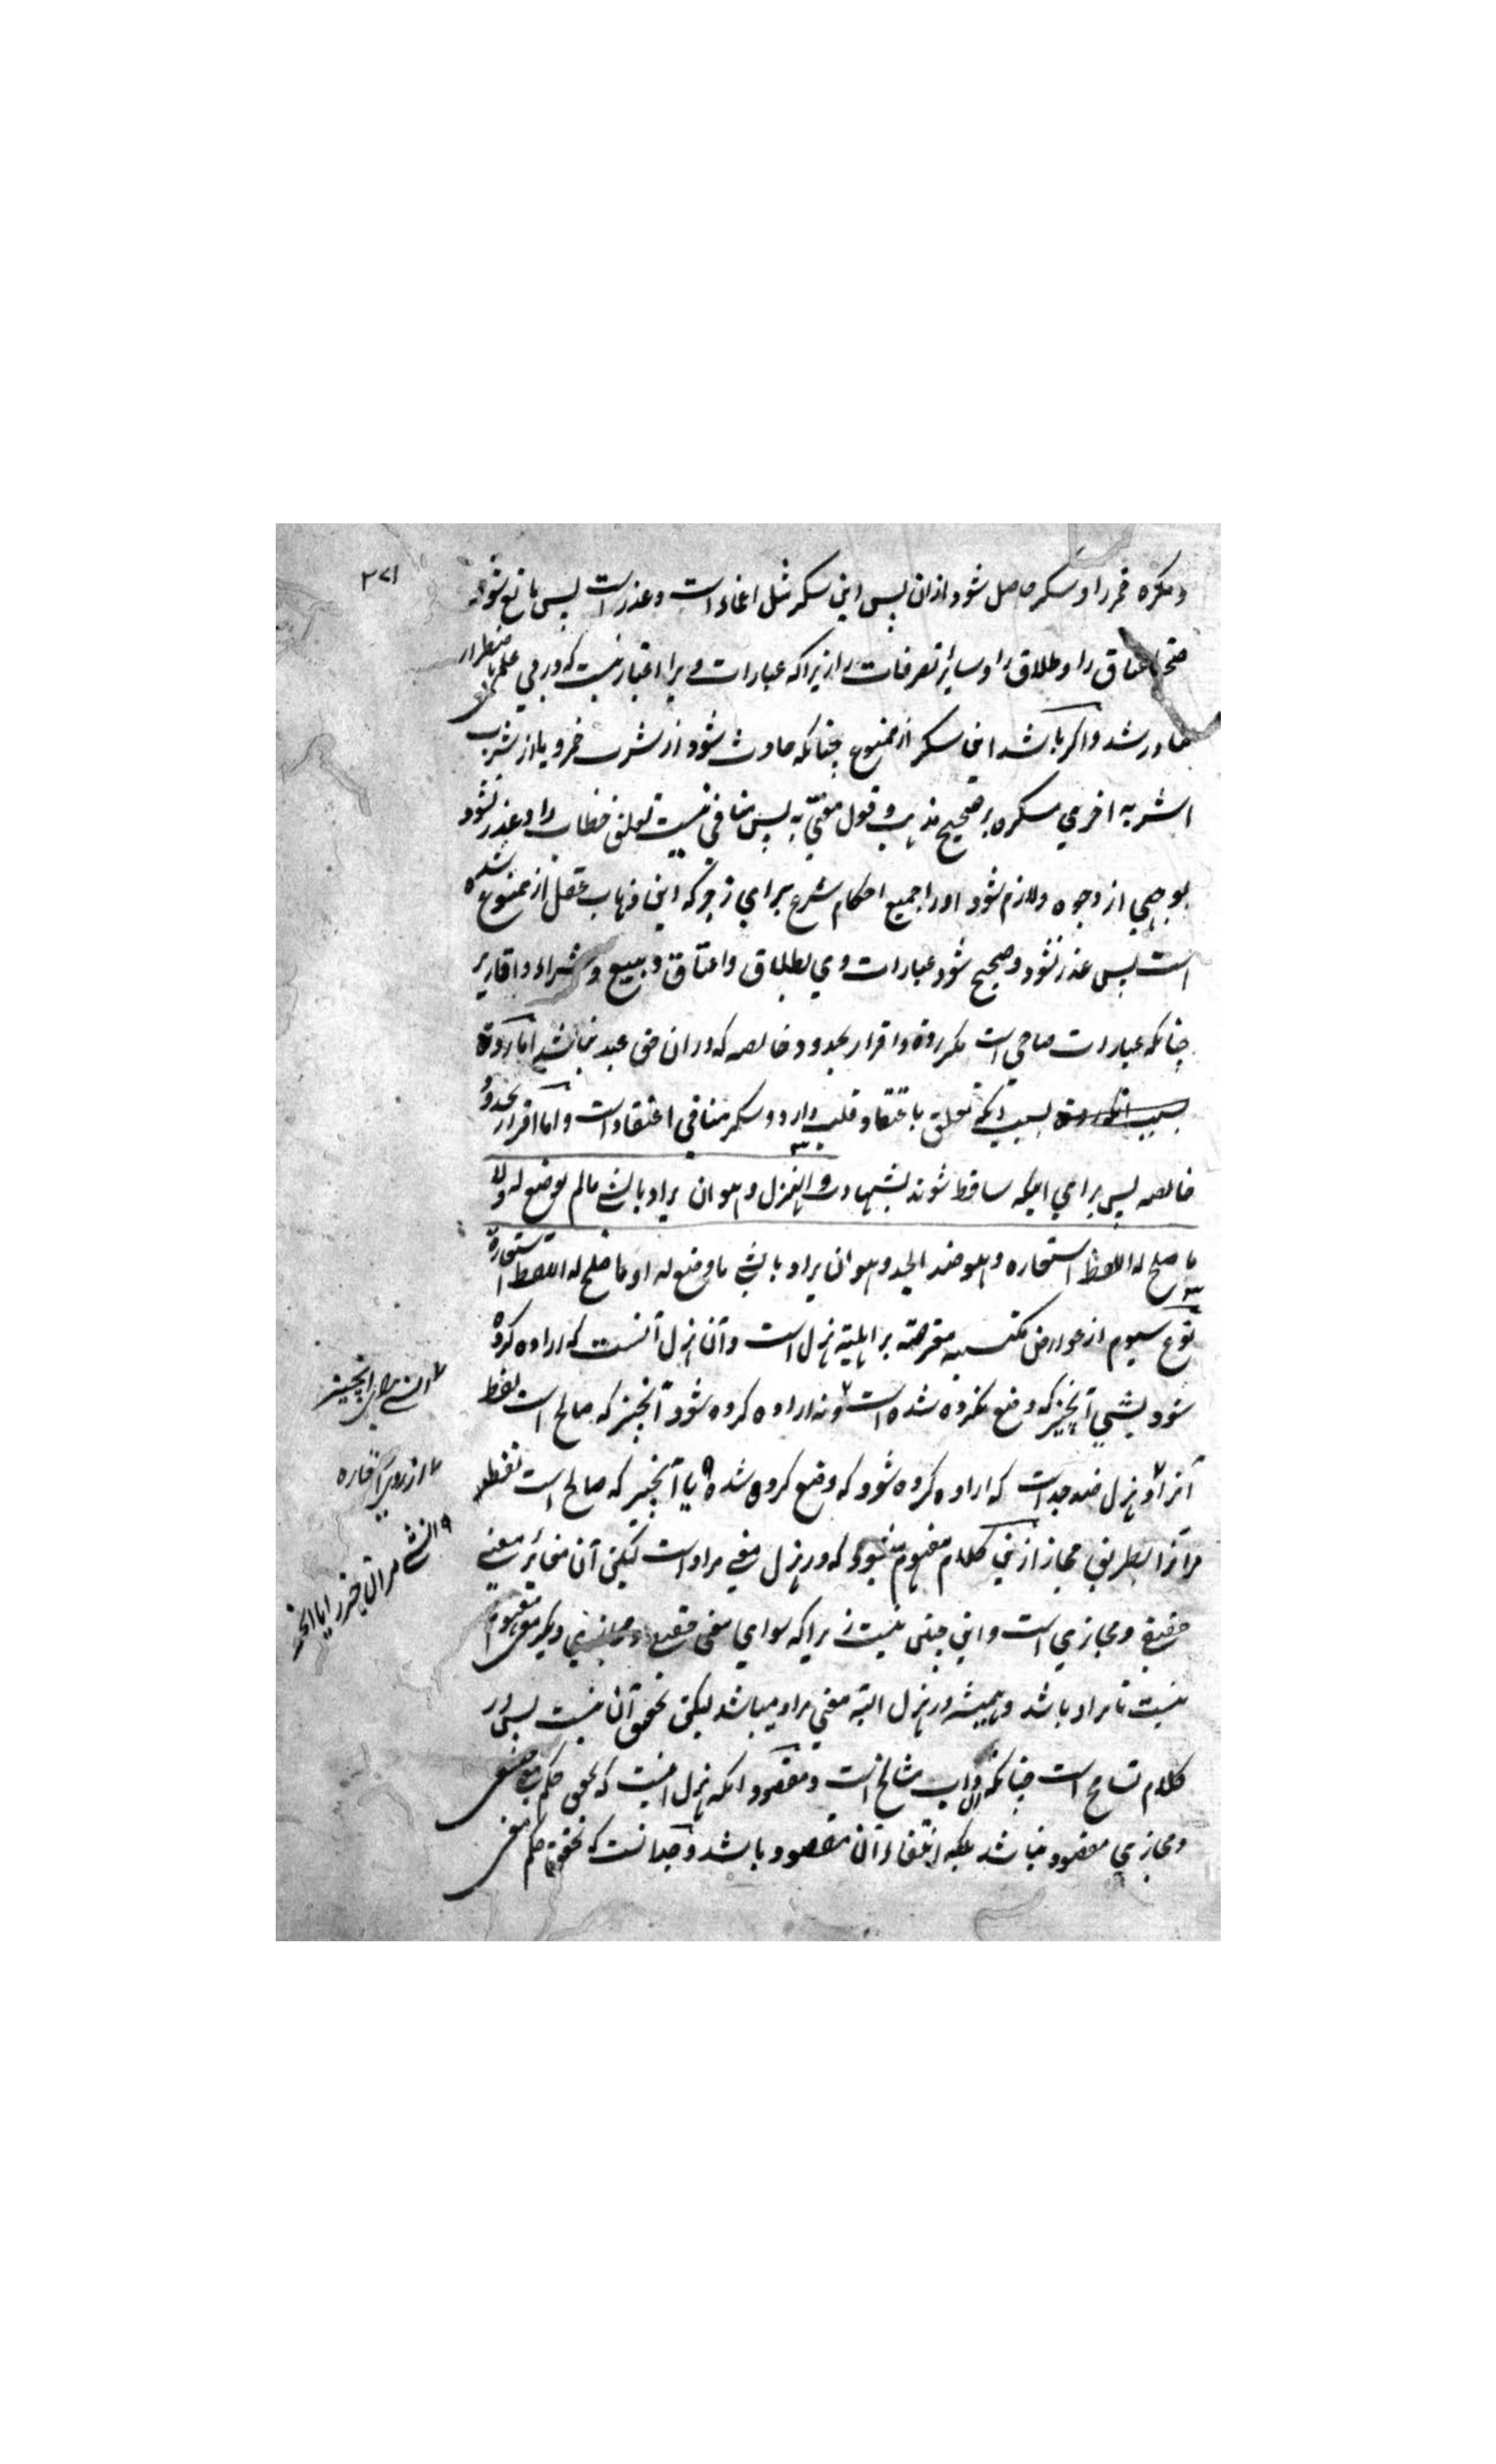 ۳۷۱
و مکره خمر را و سکر حاصل شود ازان پس این سکر مثل اغماء است و عذر است پس مانع شود
صحة اعتاق را و طلاق را و سایر تصرفات را زیراکه عبارات ویرا اعتبار نیست که در وی علم باضطرار
صادر شد و اگر باشد این سکر از ممنوع چنانکه حادث شود از شرب خمر و یا از شرب
اشربه اخری مسکره بر صحیح مذهب و قول مفتی به پس منافی نیست تعلق خطاب را و عذر نشود
بوجهی از وجوه و لازم شود او را جمیع احکام شرع برای زجر که این ذهاب عقل از ممنوع شده
است پس عذر نشود و صحیح شود عبارات وی بطلاق و اعتاق و بیع و شراء و اقاریر
چنانکه عبارات صاحی است مگر ردة و اقرار بحدود خالصه که دران حق عبد نباشد اما ردة
بسبب آنکه تعلق باعتقاد قلب دارد و سکر منافی اعتقاد است و اما اقرار بحدود
خالصه پس برای اینکه ساقط شوند بشبهات و الهزل و هو ان یراد بالشی مالم یوضع له و لا
ما صلح له اللفظ استعارة و هو ضد الجد و هو ان یراد بالشی ما وضع له او ما صلح له اللفظ استعارة
نوع سیوم از عوارض مکتسبه معترضه بر اهلیة هزل است و آن هزل آنست که اراده کرده
شود بشی آنچیز که وضع نکرده شده است و نه اراده کرده شود آنچیز که صالح است لفظ
آنرا و هزل ضد جد است که اراده کرده شود که وضع کرده شده یا آنچیز که صالح است لفظ
مر آنرا بطریق مجاز ازین کلام مفهوم میشود که در هزل معنی مراد است لیکن آن مغائر معنی
حقیقی و مجازی است و این چنین نیست زیراکه سوای معنی حقیقی و مجازی دیگر معنی مفهوم
نیست تا مراد باشد و همیشه در هزل البته معنی مراد میباشد لیکن تحقق آن نیست پس در
کلام تسامح است چنانکه داب مشائخ است و مقصود آنکه هزل اینست که تحقق حکم معنی حقیقی
و مجازی مقصود نباشد بلکه انتفاء آن مقصود باشد و جد آنست که تحقق حکم معنی
ای شی برای آنچیز
از روی استعاره